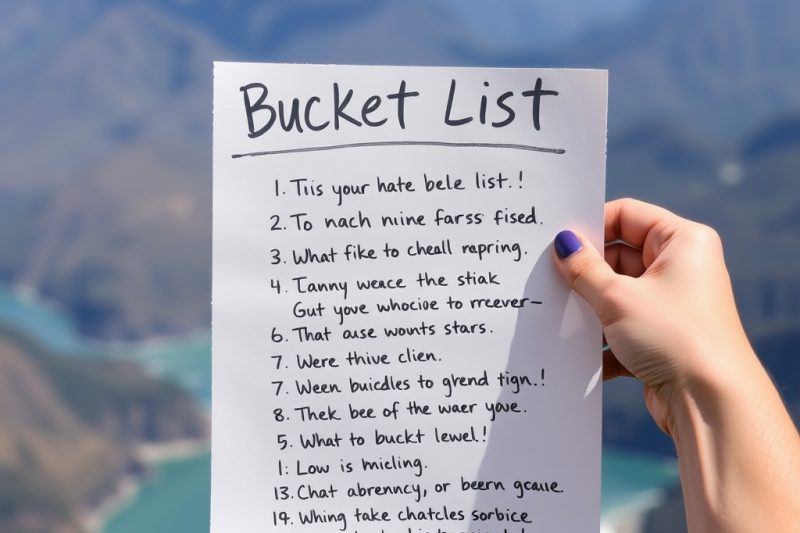 Bucket List
1. Tiis your hate bele list.!
2. To nach niine farss fised.
3. What fike to cheall rapring.
4. Tanny weace the stiak
Gut yove whocioe to rreever–
6. That ause wonts stars.
7. Were thive clien.
7. Ween buicdles to ghend tign.!
8. Thek bee of the waer yove.
5. What to buckt lewel!
1: Low is miicling.
13. Chat abrenncy, or beern gcaue.
14. Whing take chatcles sorbice